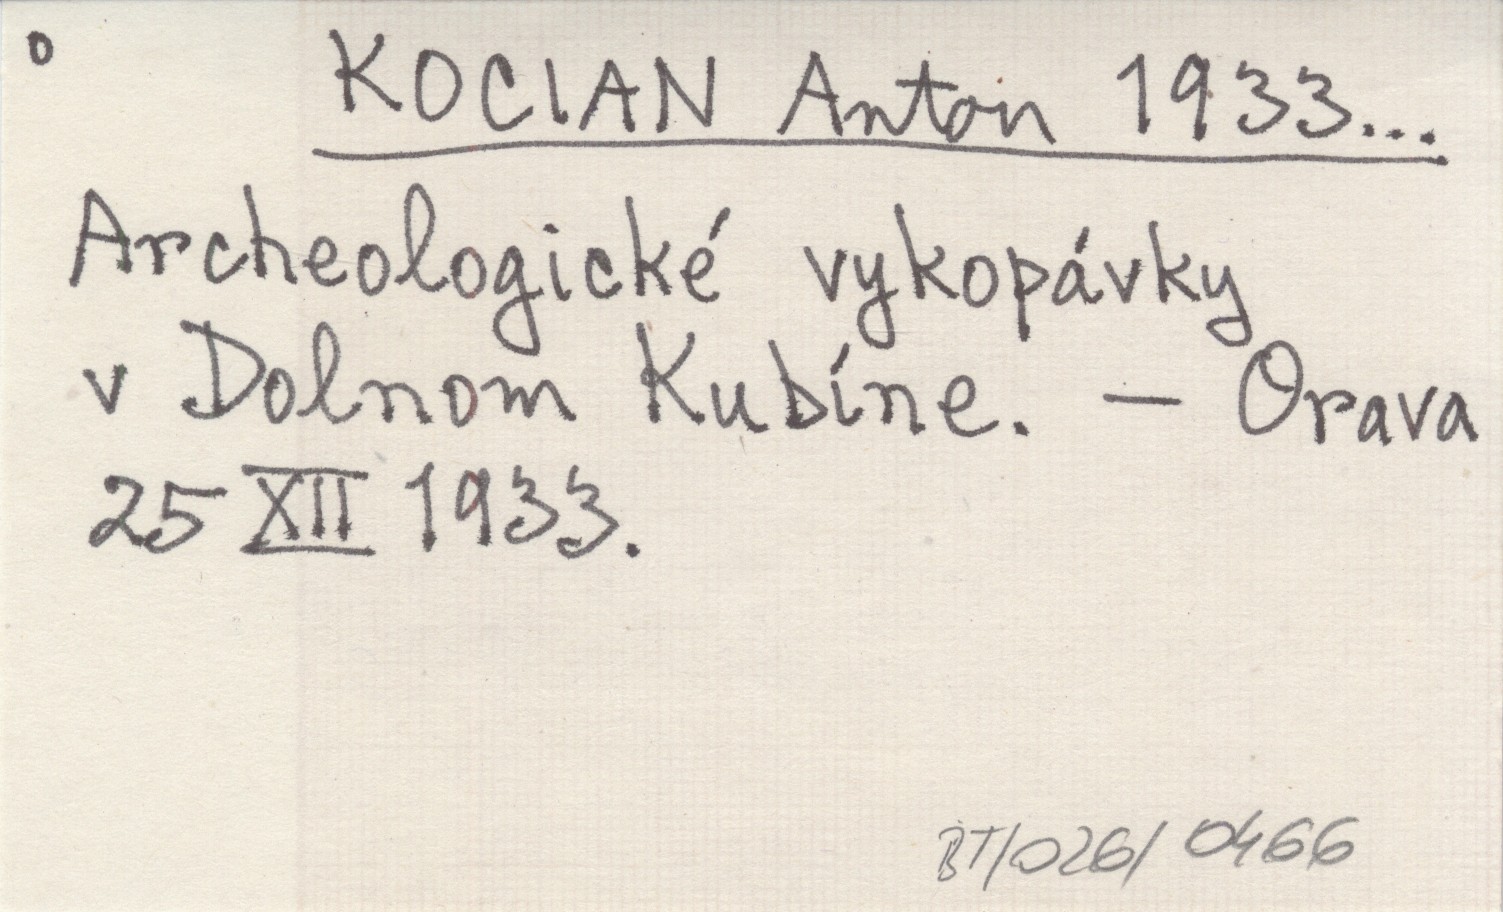 o
KOCIAN Anton 1933...
Archeologické vykopávky
v Dolnom Kubíne. — Orava
25 XII 1933.
BT/026/0466